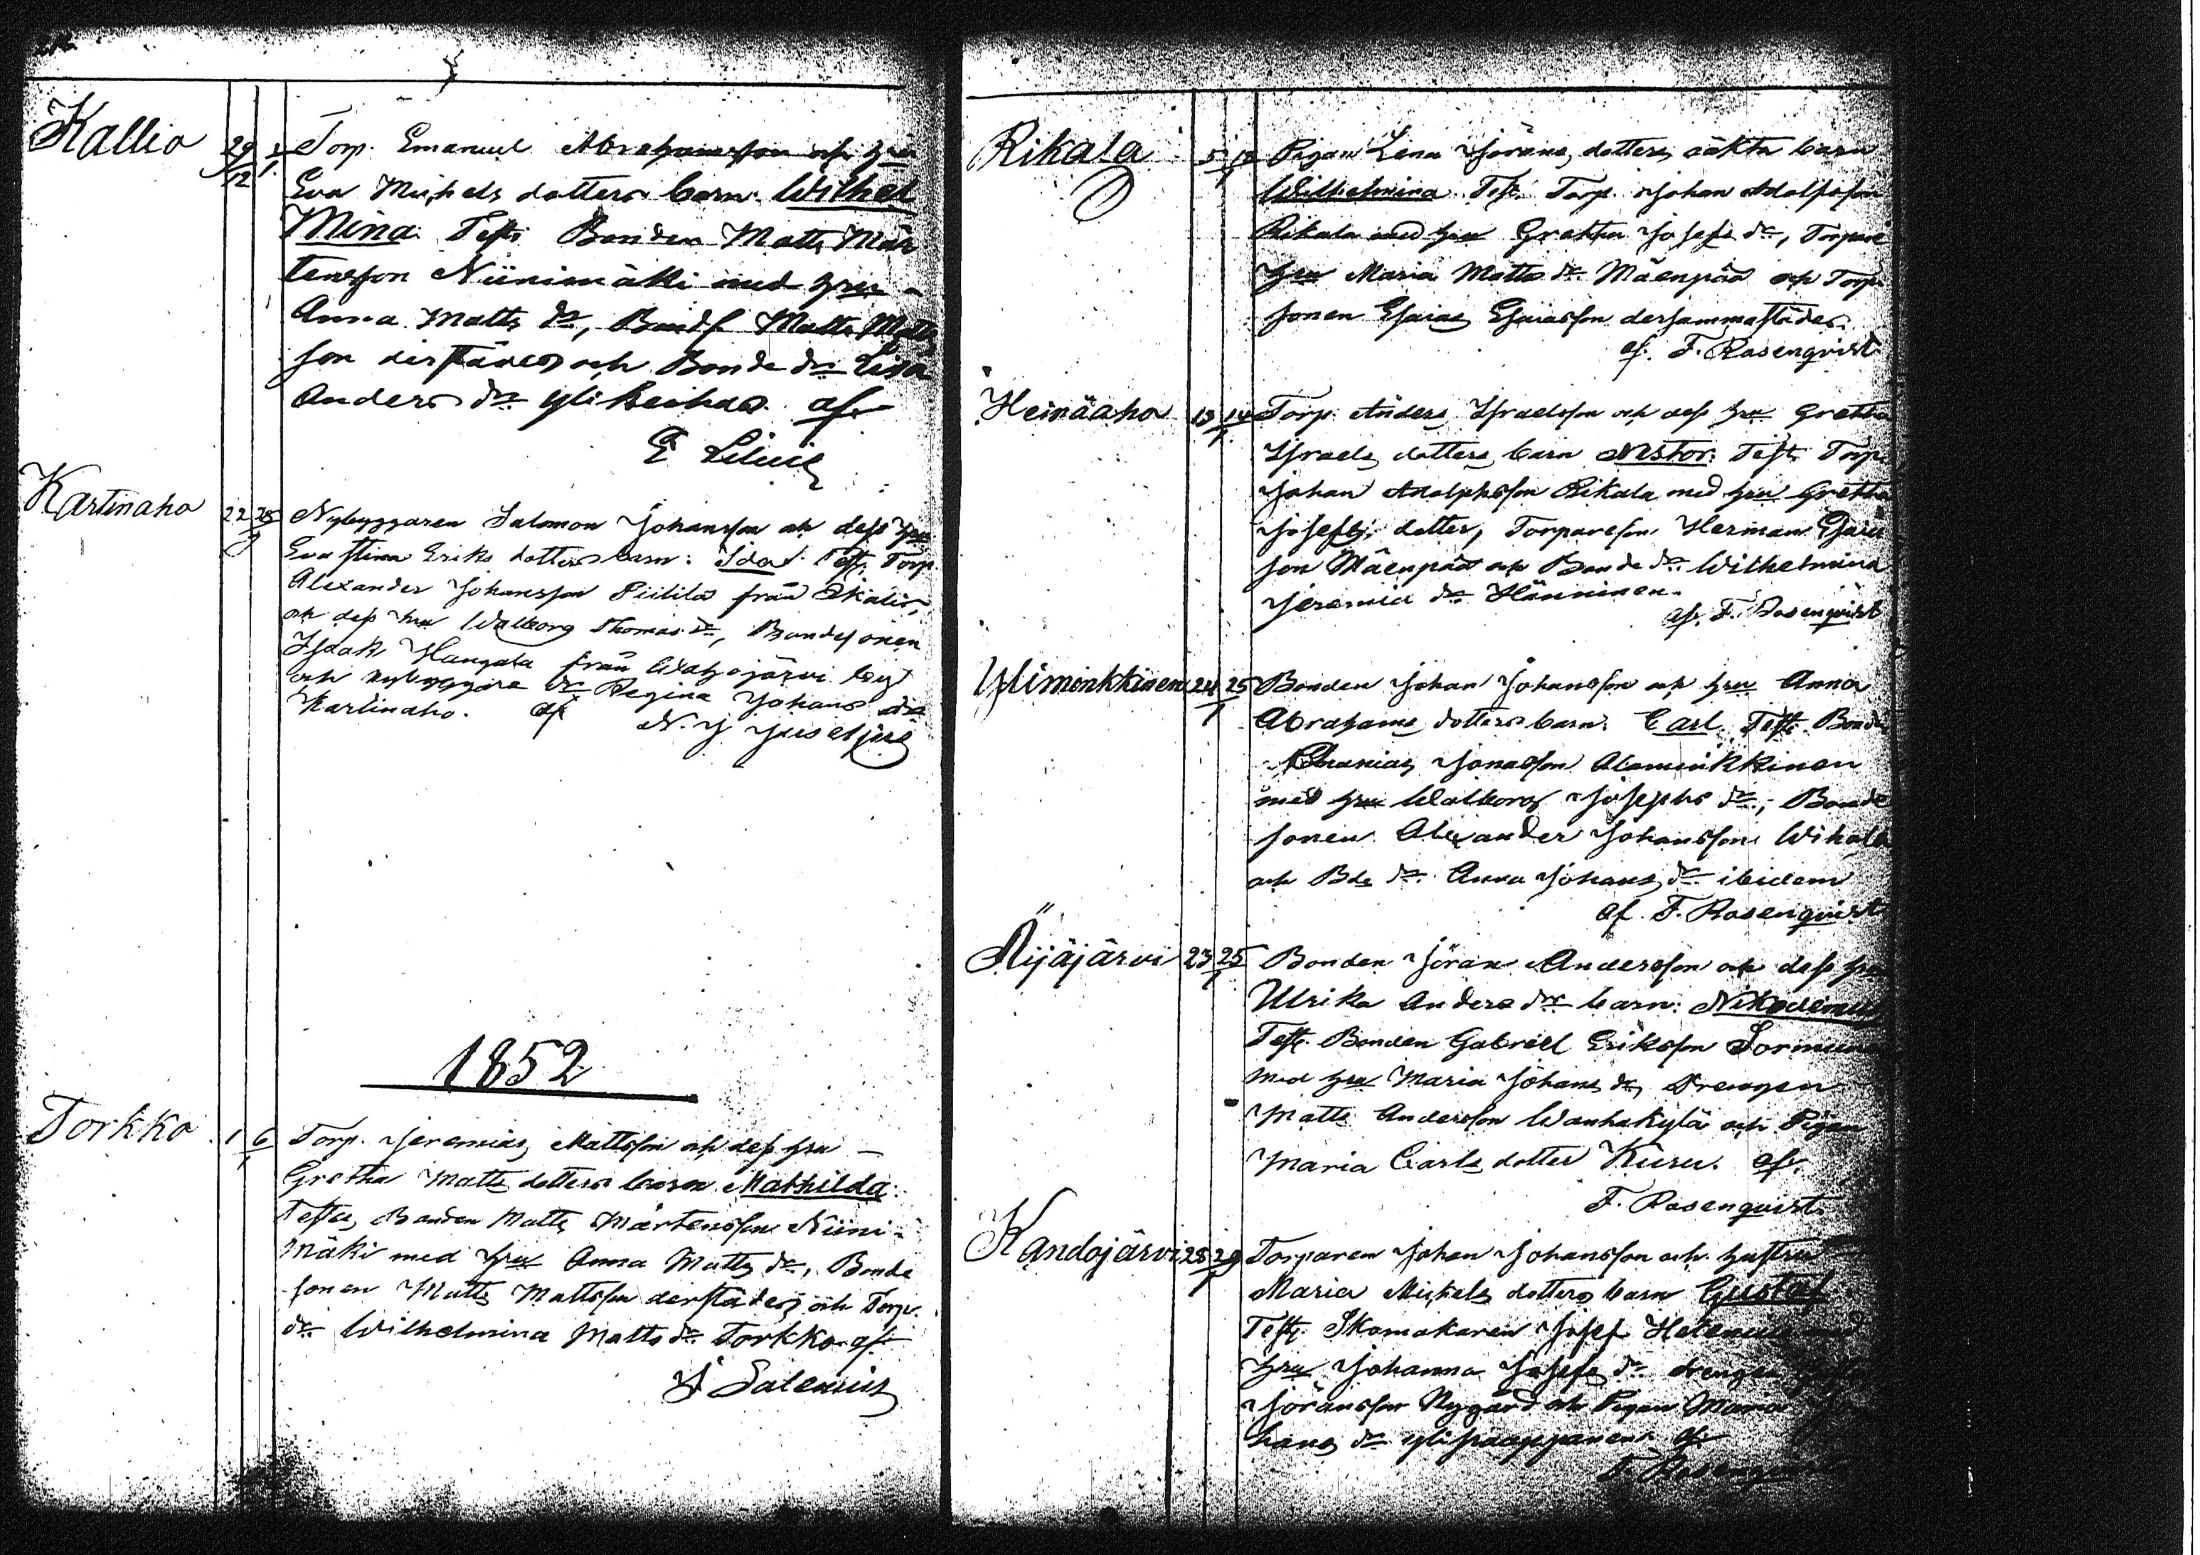 Kallio 29/12 1/1 Torp. Emanuel Abrahamsson och hru
Eva Michels dotters barn: Wilhel
mina. Test: Bonden Matts Mår
tensson Niinimäki med hru
Anna Matts dr, Bondes. Matts Matts
son derstädes och Bonde dr Lisa
Anders dr Yli af
Kartinaho 22 25/9 Nybyggaren Salomon Johansson och dess hru
Eva Stina Eriks dotters barn: Ida. Test. Torp.
Alexander Johansson Piililä från
och dess hru Walborg Thomas dr, Bondesonen
Isaak Hangala från by
och nybyggare dr Regina Johans dr
Kartinaho. af
1852
Torkko 1 6/1 Torp. Jeremias Mattsson och dess hru
Gretha Matts dotters barn Mathilda.
Testes, Bonden Matts Mårtensson Niini-
mäki med hru Anna Matts dr, Bonde
sonen Matts Mattsson derstädes, och Torp.
dr Wilhelmina Matts dr Torkko af
J Salenius
Rikala 5 12/1 Pigan Lena Jörans dotters oäkta barn
Wilhelmina Test. Torp. Johan Adolfsson
Rikala med hru Gretha Josefs dr, Torpare
hru Maria Matts dr Mäenpää och Torp.
sonen Esaias Esaiasson dersammastädes.
af. F. Rosenqvist
Heinäaho 13 14/1 Torp. Anders Israelsson och dess hru Gretha
Israels dotters barn Nestor. Test. Torp.
Johan Adolphsson Rikala med hru Gretha
Josefs dotter, Torpareson Herman Esaias
son Mäenpää och Bonde dr Wilhelmina
Jeremia dr Hänninen.
af. F. Rosenqvist
Ylimenkkinen 24 25/1 Bonden Johan Johansson och hru Anna
Abrahams dotters barn: Carl. Test. Bond.
Ananias Jonasson Alamenkkinen
med hru Walborg Josephs dr, Bonde
sonen Alexander Johansson Wihola
och Bde dr Anna Johans dr ibidem
af. F. Rosenqvist
Äijäjärvi 23 25/1 Bonden Jöran Andersson och dess hru
Ulrika Anders drs barn: Nikodemus
Test. Bonden Gabriel Eriksson Sormunen
med hru Maria Johans dr, Drengen
Matts Andersson Wanhakylä och Pigan
Maria Carls dotter Kuru. af.
F. Rosenqvist.
Kandojärvi 28 29/1 Torparen Johan Johansson och hustru
Maria Mickels dotters barn Gustaf
Test. Skomakaren Josef Helenius med
hru Johanna Josefs dr drengen
Jöransson Nygård och Pigan Maria
hans dr af
F. Rosenqvist